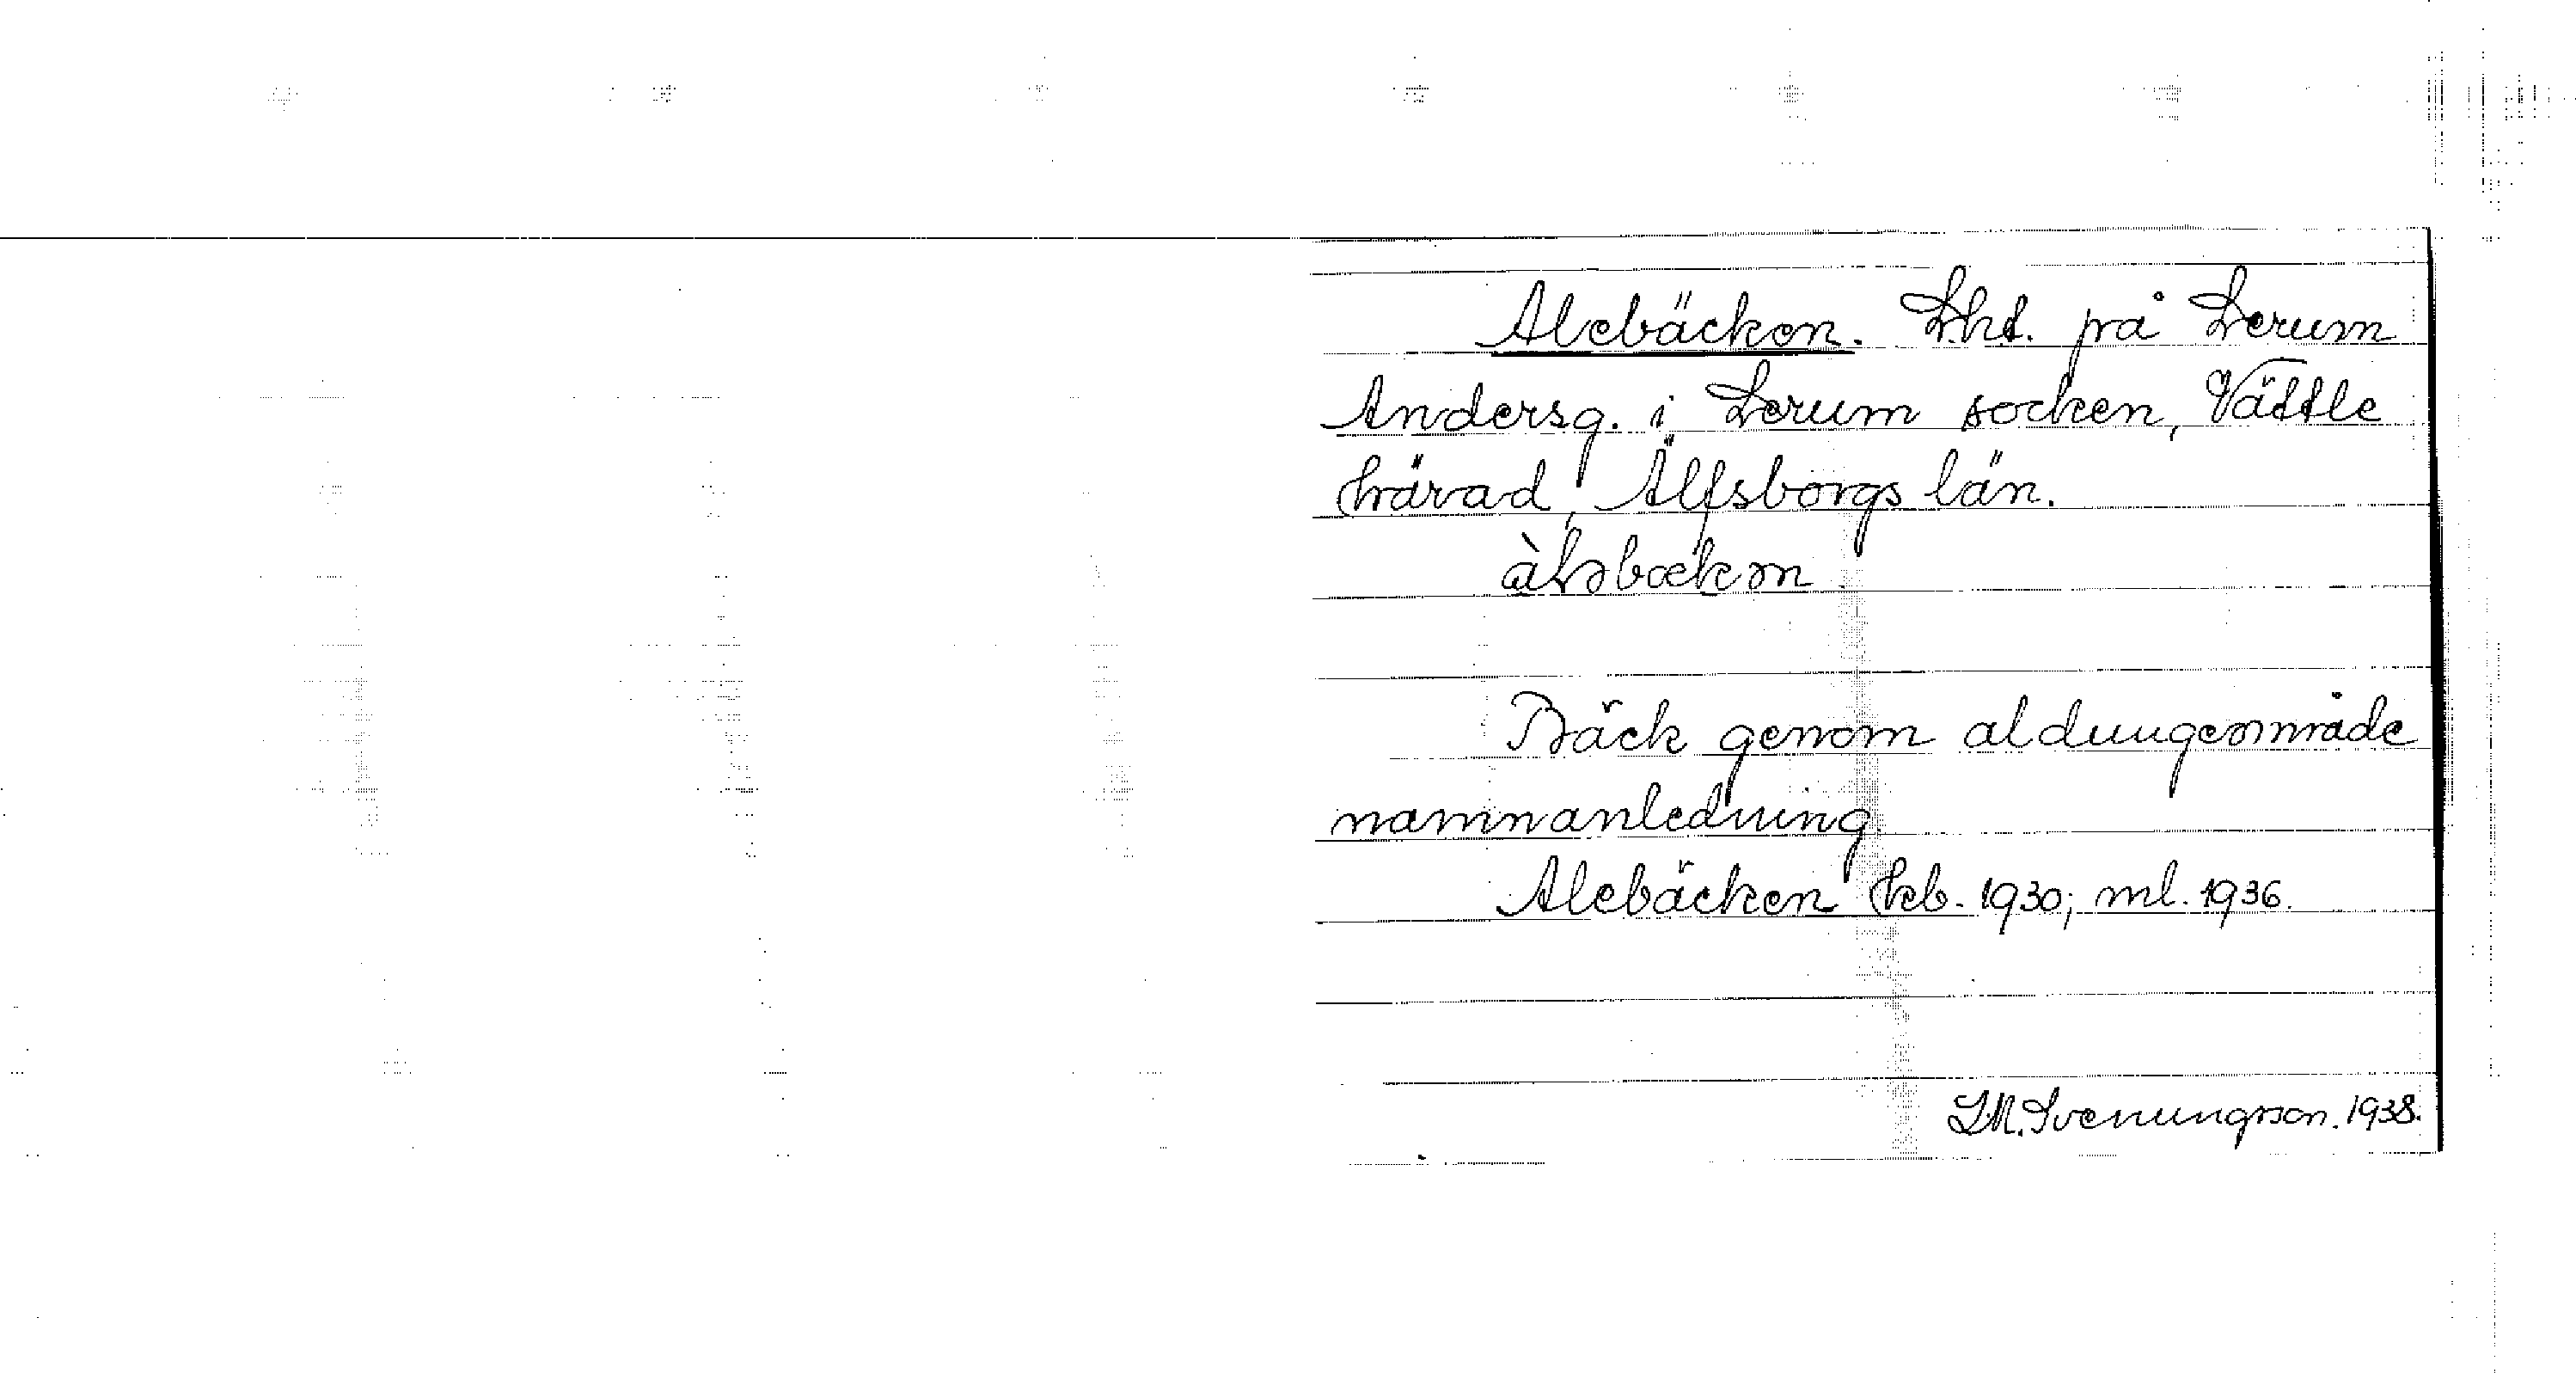 Alebäcken. Lht. på Lerum
Andersg. i Lerum socken, Vättle
härad, Älfsborgs län.
àləbœkən
Bäck genom aldungeområde
namnanledning.
Alebäcken hcb. 1930; ml. 1936.
S.M. Svenungsson. 1938.